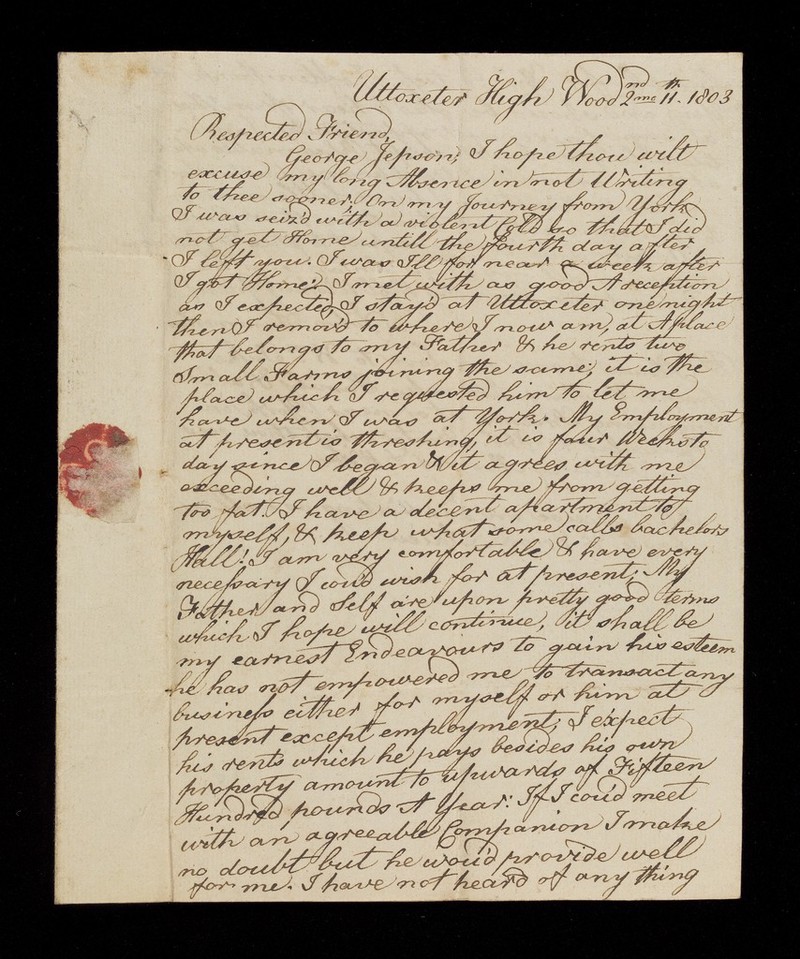 Uttoxeter High Wood 2nd mo 11th. 1803
Respected Friend,
George Jepson, I hope thou wilt
excuse my long Absence in not Writing
to thee sooner, On my Journey from York
I was seiz'd with a violent Cold so that I did
not get Home untill the fourth day after
I left you. I was Ill for near a week after
I got Home. I met with as good A reception
as I expected, I stay'd at Uttoxeter one night
then I remov'd to where I now am, at A place
that belongs to my Father & he rents two
Small Farms joining the same, it is the
place which I requested him to let me
have when I was at York. My Employment
at present is threshing, it is four Weeks to
day since I began & it agrees with me
exceeding well & keeps me from getting
too fat. I have a decent apartment to
myself, & keep what some calls bachelors
Hall! I am very comfortable & have every
necessary I cou'd wish for at present; My
Father and Self are upon pretty good terms
which I hope will continue, it shall be
my earnest Endeavours to gain his esteem
he has not empowered me to transact any
business either for myself or him at
present except employment; I expect
his rents which he pays besides his own
property amount to upwards of Fifteen
Hundred pounds A Year: If I cou'd meet
with an agreeable Companion I make
no doubt but he wou'd provide well
for me. I have not heard of any thing